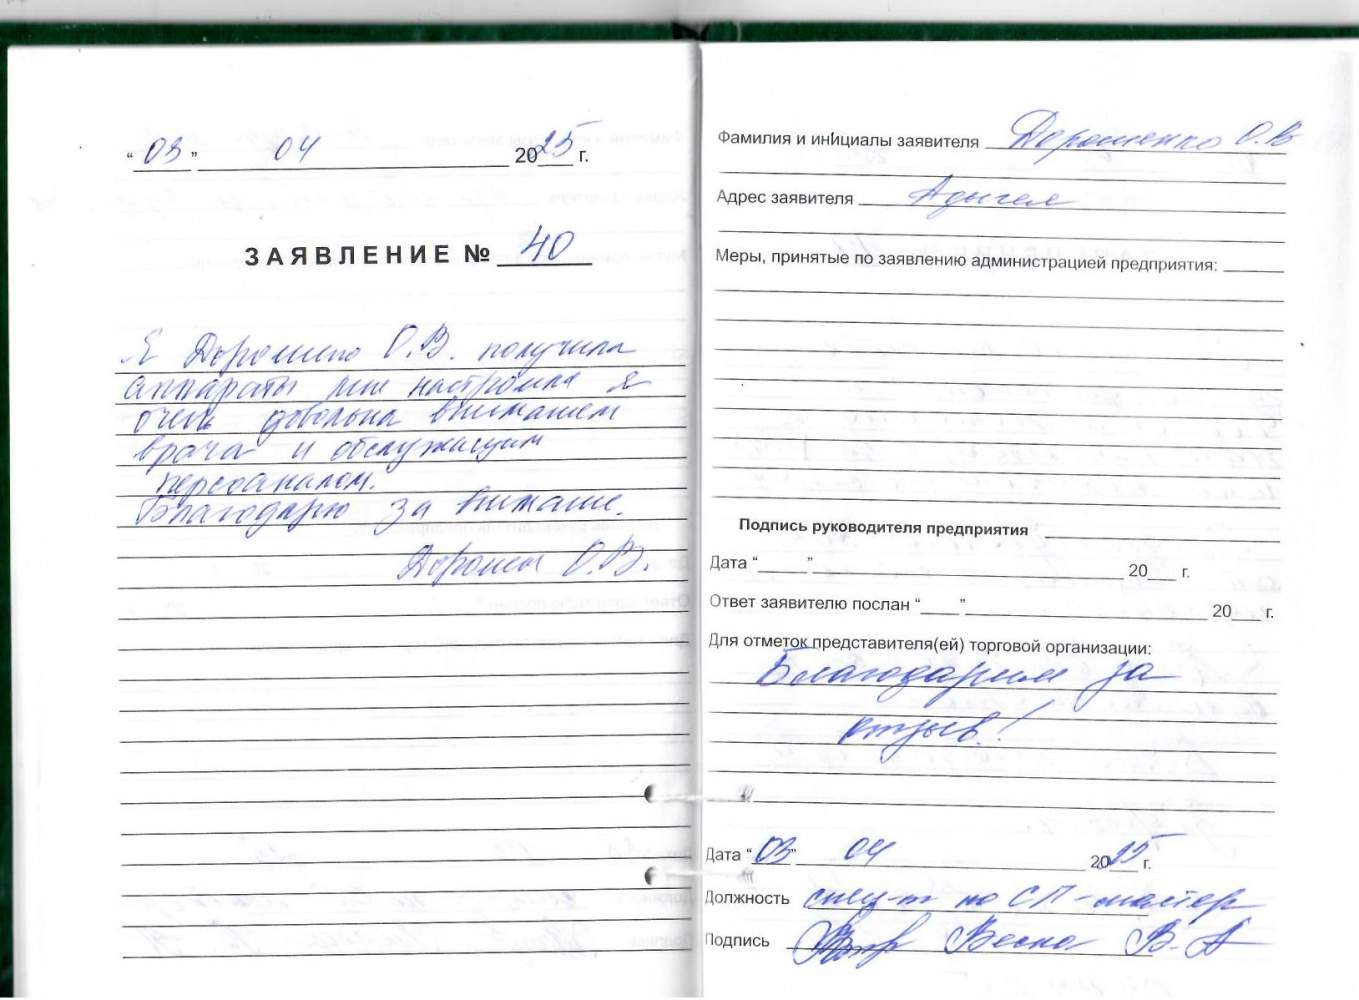 “ 03 ” 04 2025 г.
ЗАЯВЛЕНИЕ № 40
Я Дорошенко О.В. получила
аппараты мне настроила я
очень довольна вниманием
врача и обслужищим
персоаналом.
Благодарю за внимание.
О.В.
Фамилия и инициалы заявителя Дорошенко О.В
Адрес заявителя Адыгея
Меры, принятые по заявлению администрацией предприятия:
Подпись руководителя предприятия
Дата “ ” 20 г.
Ответ заявителю послан “ ” 20 г.
Для отметок представителя(ей) торговой организации:
Благодарим за
отзыв!
Дата “ 03 ” 04 2025 г.
Должность спец-т по СП-мастер
Подпись Весна В.А